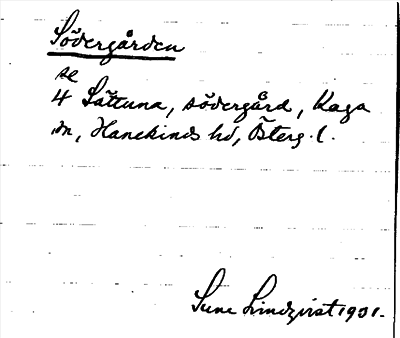 Södergården
se
4 Sättuna, södergård, Kaga
sn, Hanekinds hd, Österg. l.
Sune Lindqvist 1931.